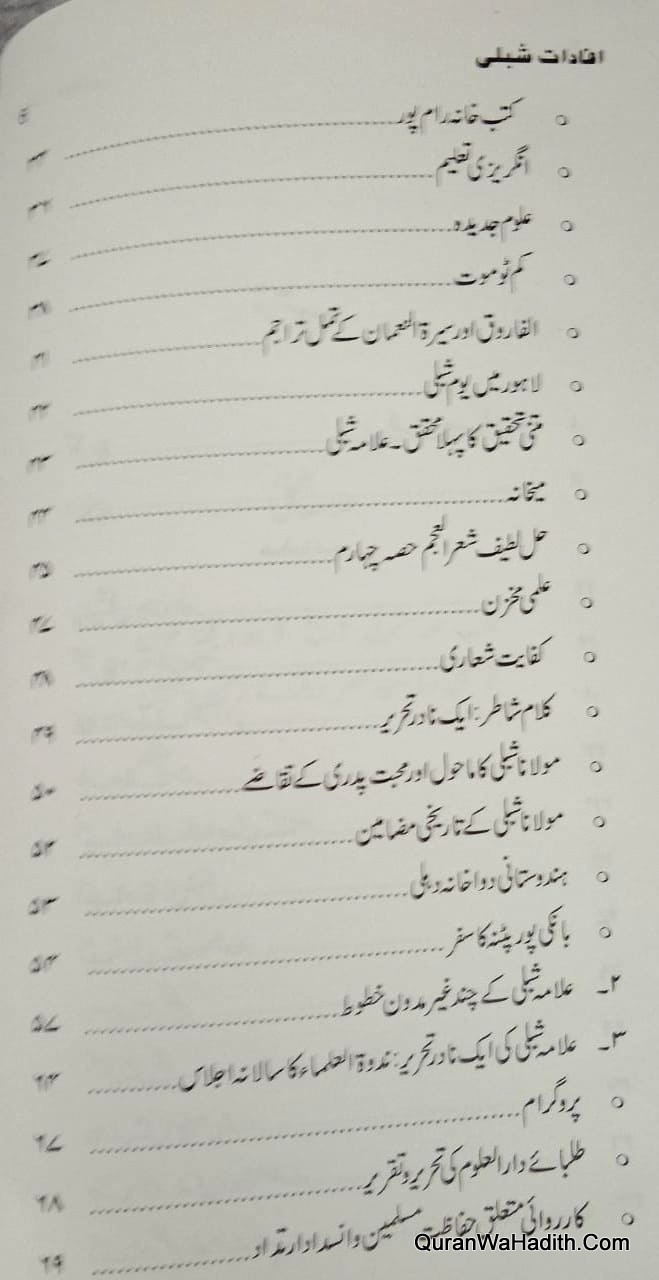 افادات شبلی
6
○ کتب خانہ رام پور
○ انگریزی تعلیم
○ علوم جدیدہ
○ کم ٹو موت
○ الفاروق اور سیرۃ النعمان کے مکمل تراجم
○ لاہور میں یوم شبلی ۴۲
○ متنی تحقیق کا پہلا محقق۔ علامہ شبلی ۴۳
○ میخانہ ۴۴
○ حل لطیف شعر العجم حصہ چہارم ۴۵
○ علمی مخزن ۴۷
○ کفایت شعاری ۴۸
○ کلام شاطر: ایک نادر تحریر ۴۹
○ مولانا شبلی کا ماحول اور محبت پدری کے تقاضے ۵۰
○ مولانا شبلی کے تاریخی مضامین ۵۲
○ ہندوستانی دواخانہ دہلی ۵۳
○ بانکی پور پٹنہ کا سفر ۵۴
۲۔ علامہ شبلی کے چند غیر مدون خطوط ۵۷
۳۔ علامہ شبلی کی ایک نادر تحریر: ندوۃ العلماء کا سالانہ اجلاس ۶۴
○ پروگرام ۶۷
○ طلبائے دارالعلوم کی تحریر و تقریر ۶۸
○ کارروائی متعلق حفاظت مسلمین و انسداد ارتداد ۶۹
QuranWaHadith.Com